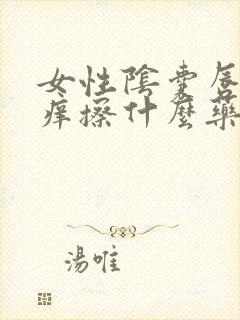 女性陰囊唇
痒擦什麼藥
湯唯